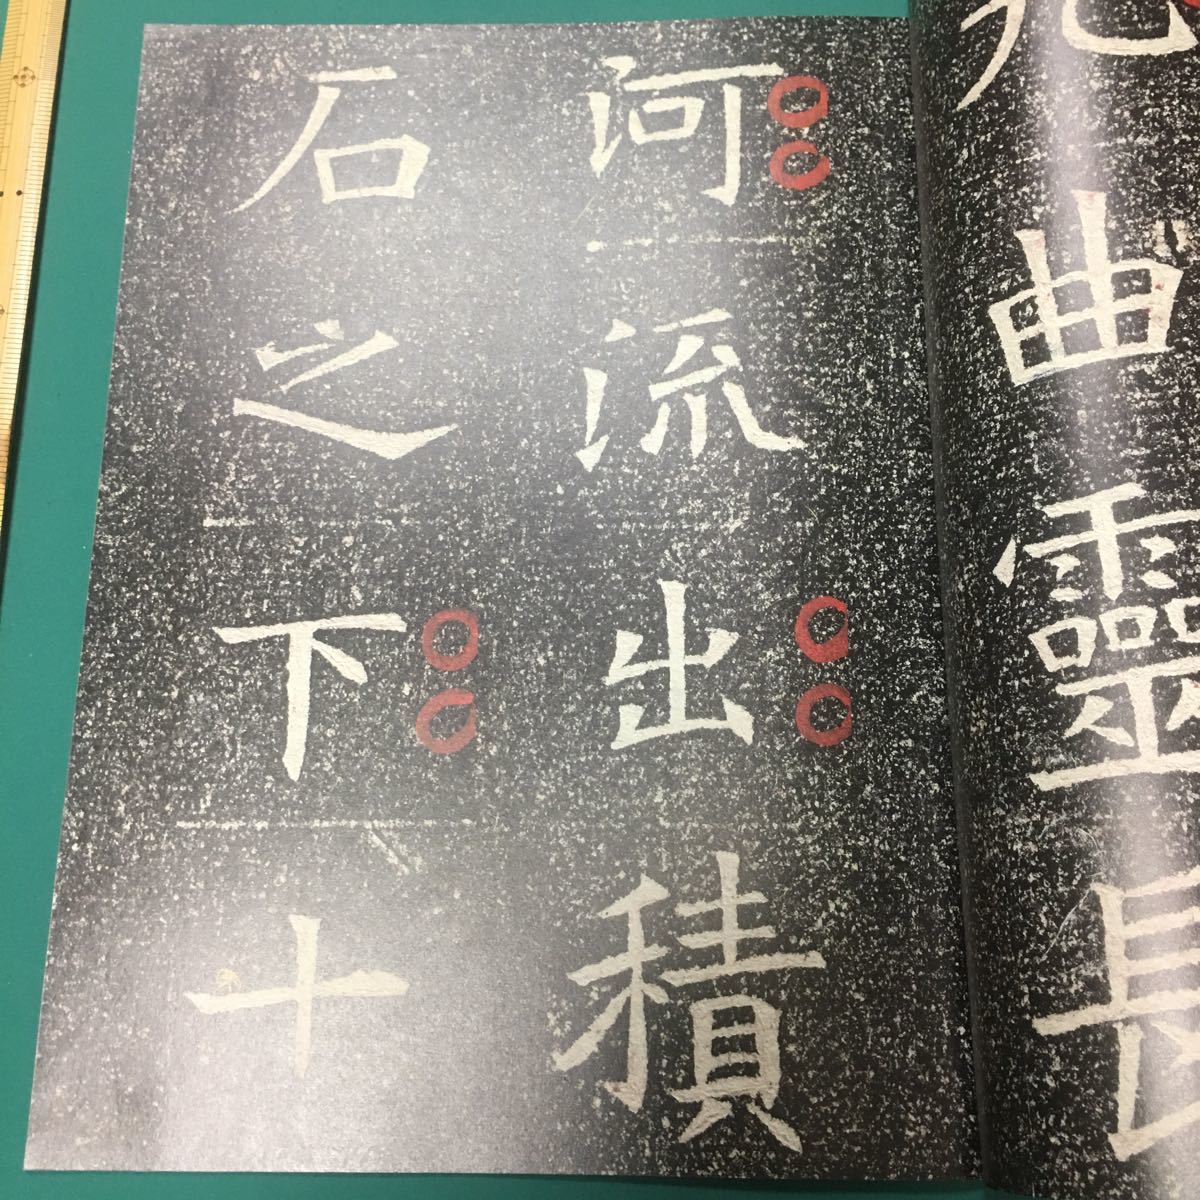 九曲靈長
河流出積
石之下十